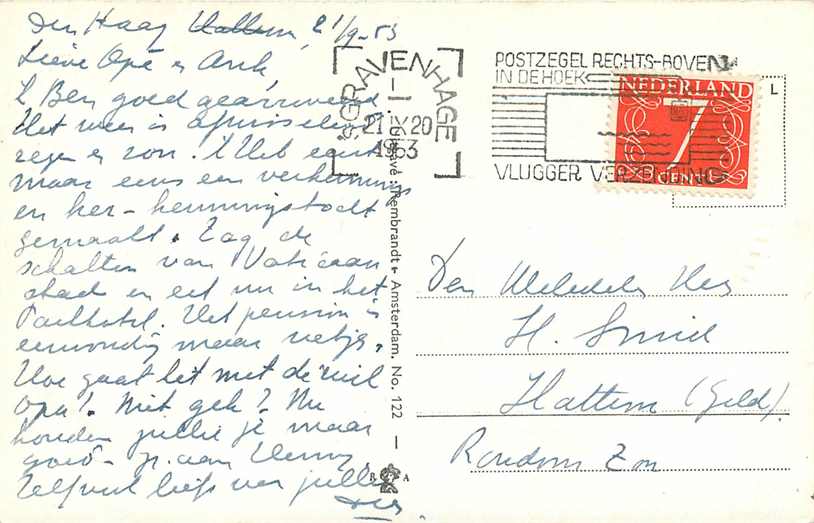 Den Haag Hattem, 21/9-53
Lieve Opa en
k Ben goed gearriveerd
Het weer is afwisselend
regen en zon. 'k Heb eerst
maar eens een verkennings
en her-kenningstocht
gemaakt. Zag de
schatten van Vaticaan
stad en eet nu in het
Parkhotel. Het pension is
eenvoudig maar netjes.
Hoe gaat het met de
Opa? Niet gek? Nu
houden jullie je maar
goed
liefs van jullie
's-GRAVENHAGE
21 IX 20
1953
POSTZEGEL RECHTS-BOVEN
IN DE HOEK
VLUGGER VERZE
NEDERLAND
7
CENT
L
Uitgave Rembrandt - Amsterdam. No. 122
R A
Den Weledelen Heer
H. Smid
Hattem (Geld.)
Rondom Zon